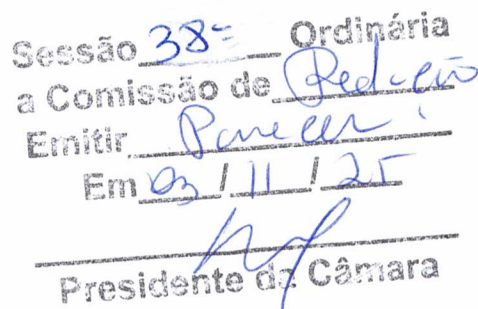 Sessão 38ª Ordinária
a Comissão de Redação
Emitir Parecer
Em 03/11/25
Presidente da Câmara